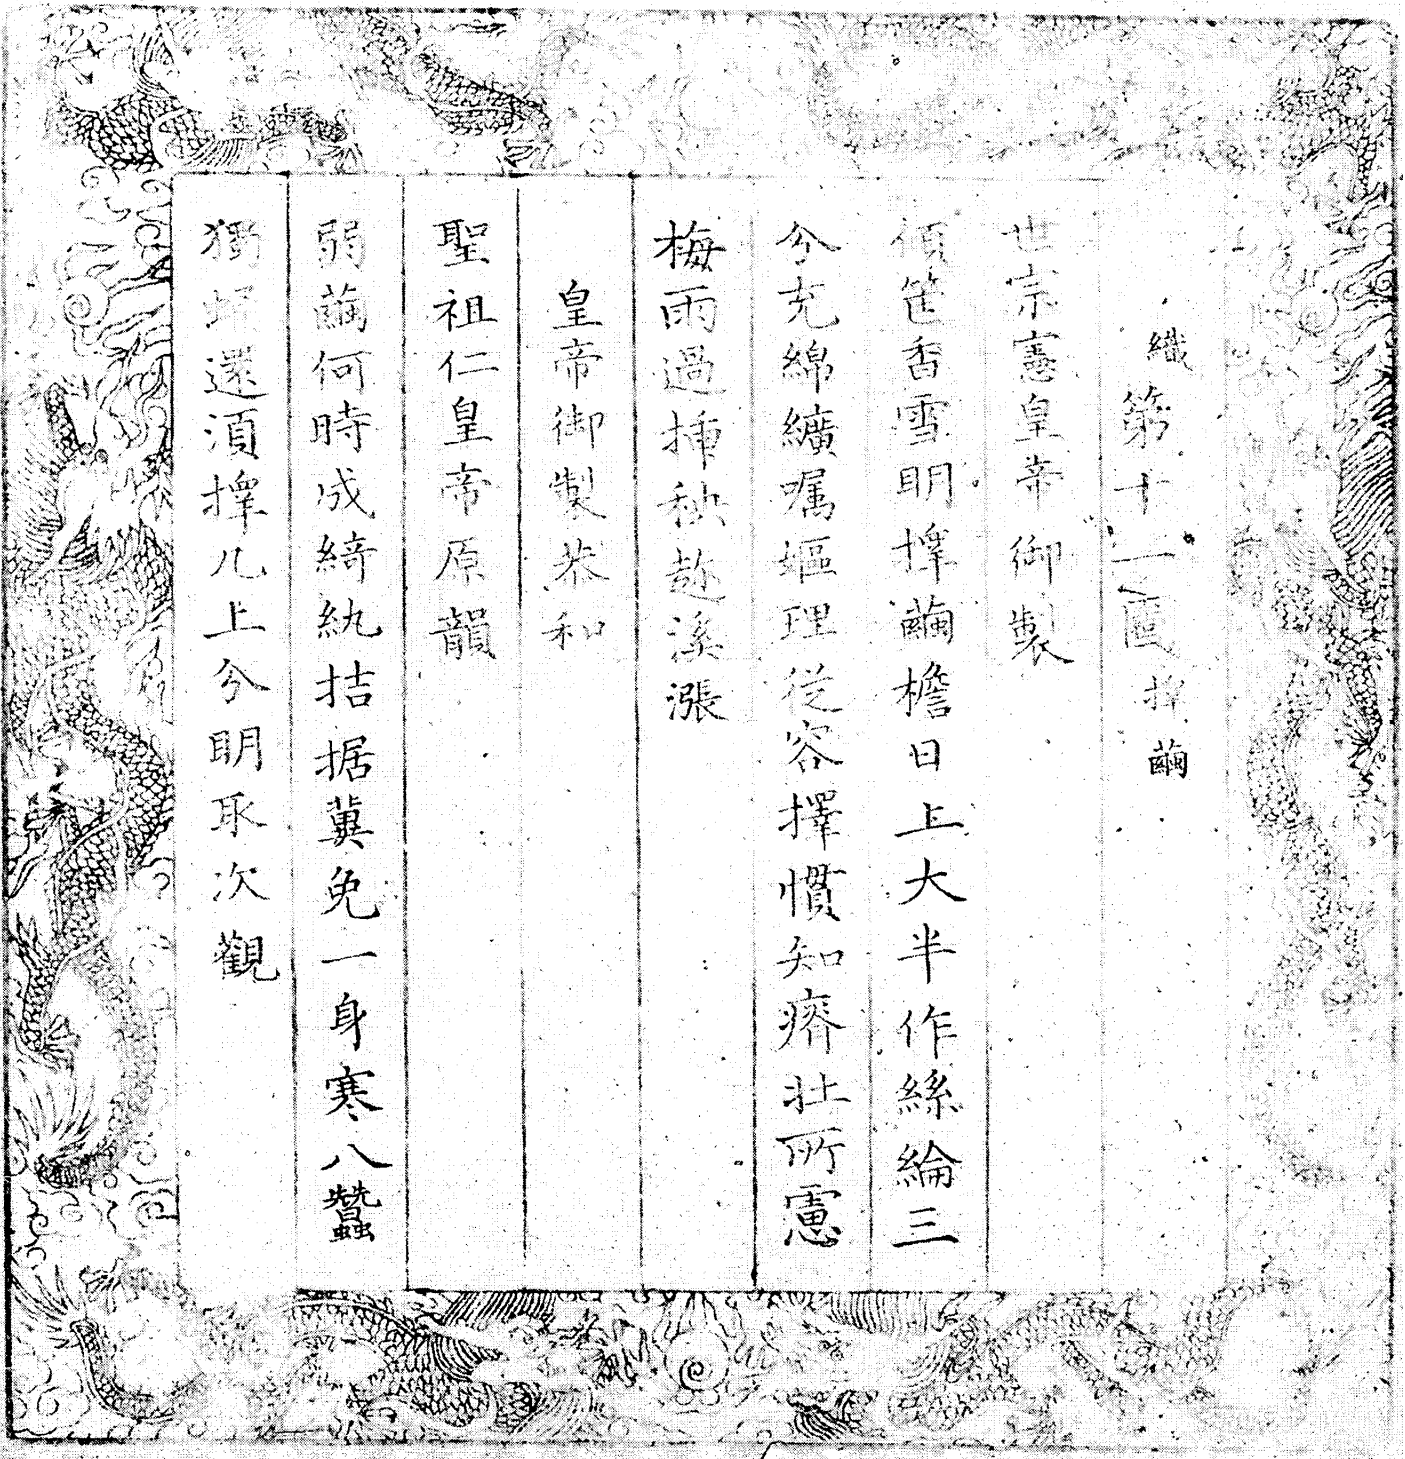 織第十一圖擇繭
世宗憲皇帝御製
傾筐香雪明擇繭檐日上大半作絲綸三
分充綿纊嘱嫗理從容擇慣知瘠壯所慮
梅雨過揷秧趂溪漲
皇帝御製恭和
聖祖仁皇帝原韻
弱繭何時成綺紈拮据冀免一身寒八蠶
獨蛹還須擇几上分明取次觀